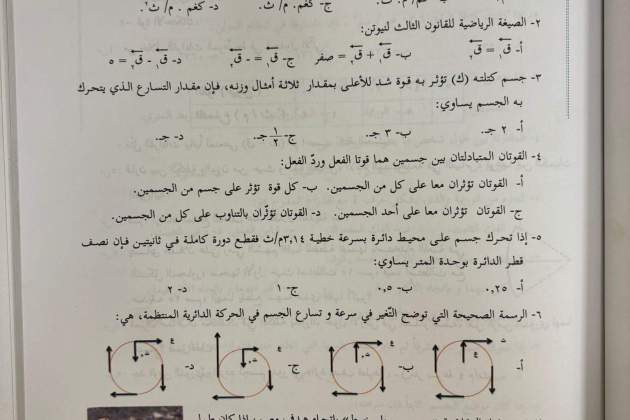 ج- كغم. م/ ث. د- كغم . م/ ث٢.
٢- الصيغة الرياضية للقانون الثالث لنيوتن:
أ- ق١ = ق٢ ب- ق١ + ق٢ = صفر ج- ق١ = - ق٢ د- ق١ - ق٢ = ٥
٣- جسم كتلته (ك) تؤثر به قوة شد للأعلى بمقدار ثلاثة أمثال وزنه، فإن مقدار التسارع الذي يتحرك
به الجسم يساوي:
أ- ٢ جـ. ب- ٣ جـ. ج- ١/٢ جـ. د- جـ.
٤- القوتان المتبادلتان بين جسمين هما قوتا الفعل وردّ الفعل:
أ- القوتان تؤثران معا على كل من الجسمين. ب- كل قوة تؤثر على جسم من الجسمين.
ج- القوتان تؤثران معا على أحد الجسمين. د- القوتان تؤثّران بالتناوب على كل من الجسمين.
٥- إذا تحرك جسم على محيط دائرة بسرعة خطية ٣,١٤م/ث فقطع دورة كاملة في ثانيتين فإن نصف
قطر الدائرة بوحدة المتر يساوي:
أ- ٠,٢٥ ب- ٠,٥ ج- ١ د- ٢
٦- الرسمة الصحيحة التي توضح التّغير في سرعة و تسارع الجسم في الحركة الدائرية المنتظمة، هي:
أ- ب- ج- د-